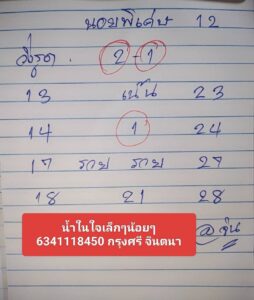 นอยพิเศษ 12
วิ่งรูด . 2-1
13 เน้น 23
14 1 24
17 รวย รวย 27
18 21 28
น้ำในใจเล็กๆน้อยๆ
6341118450 กรุงศรี จินตนา